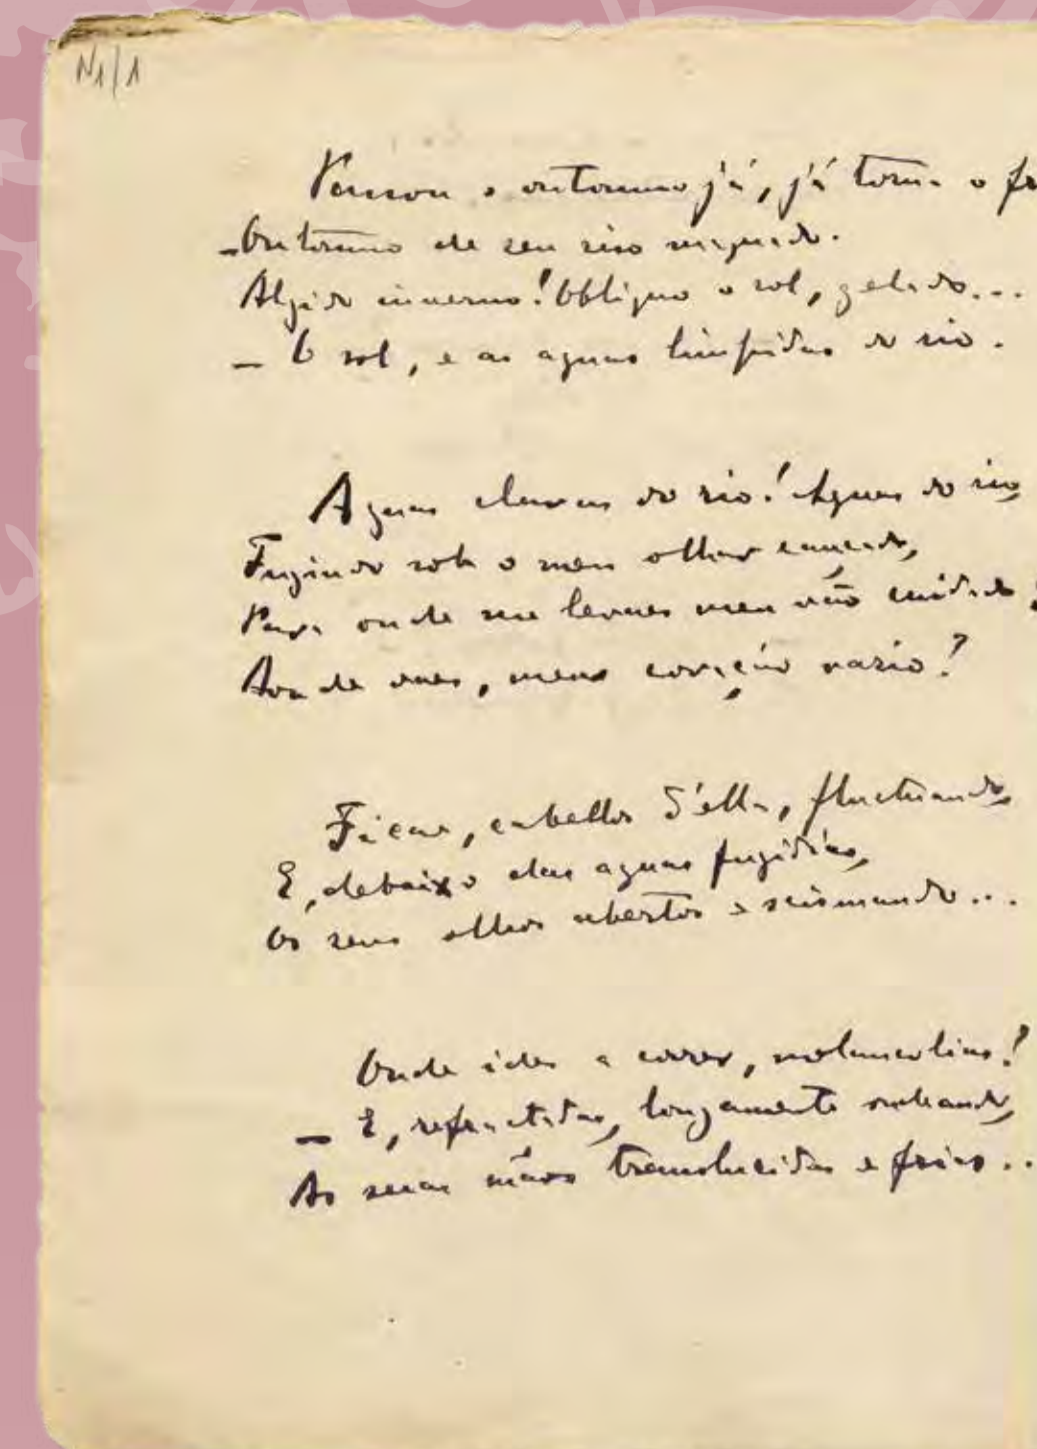 N1/1
Passou o outomno já, já torna o fr
- Outomno de seu riso maguado.
Algido inverno! Obliquo o sol, gelado...
- O sol, e as aguas limpidas do rio.
Aguas claras do rio! Aguas do rio,
Fugindo sob o meu olhar cançado,
Para onde me levaes meu vão cuidado?
Aonde vaes, meu coração vazio?
Ficae, cabellos d'ella, fluctuando,
E, debaixo das aguas fugidias,
Os seus olhos abertos e scismando...
Onde ides a correr, melancolias?
- E, refractadas, longamente ondeando,
As suas mãos translucidas e frias...